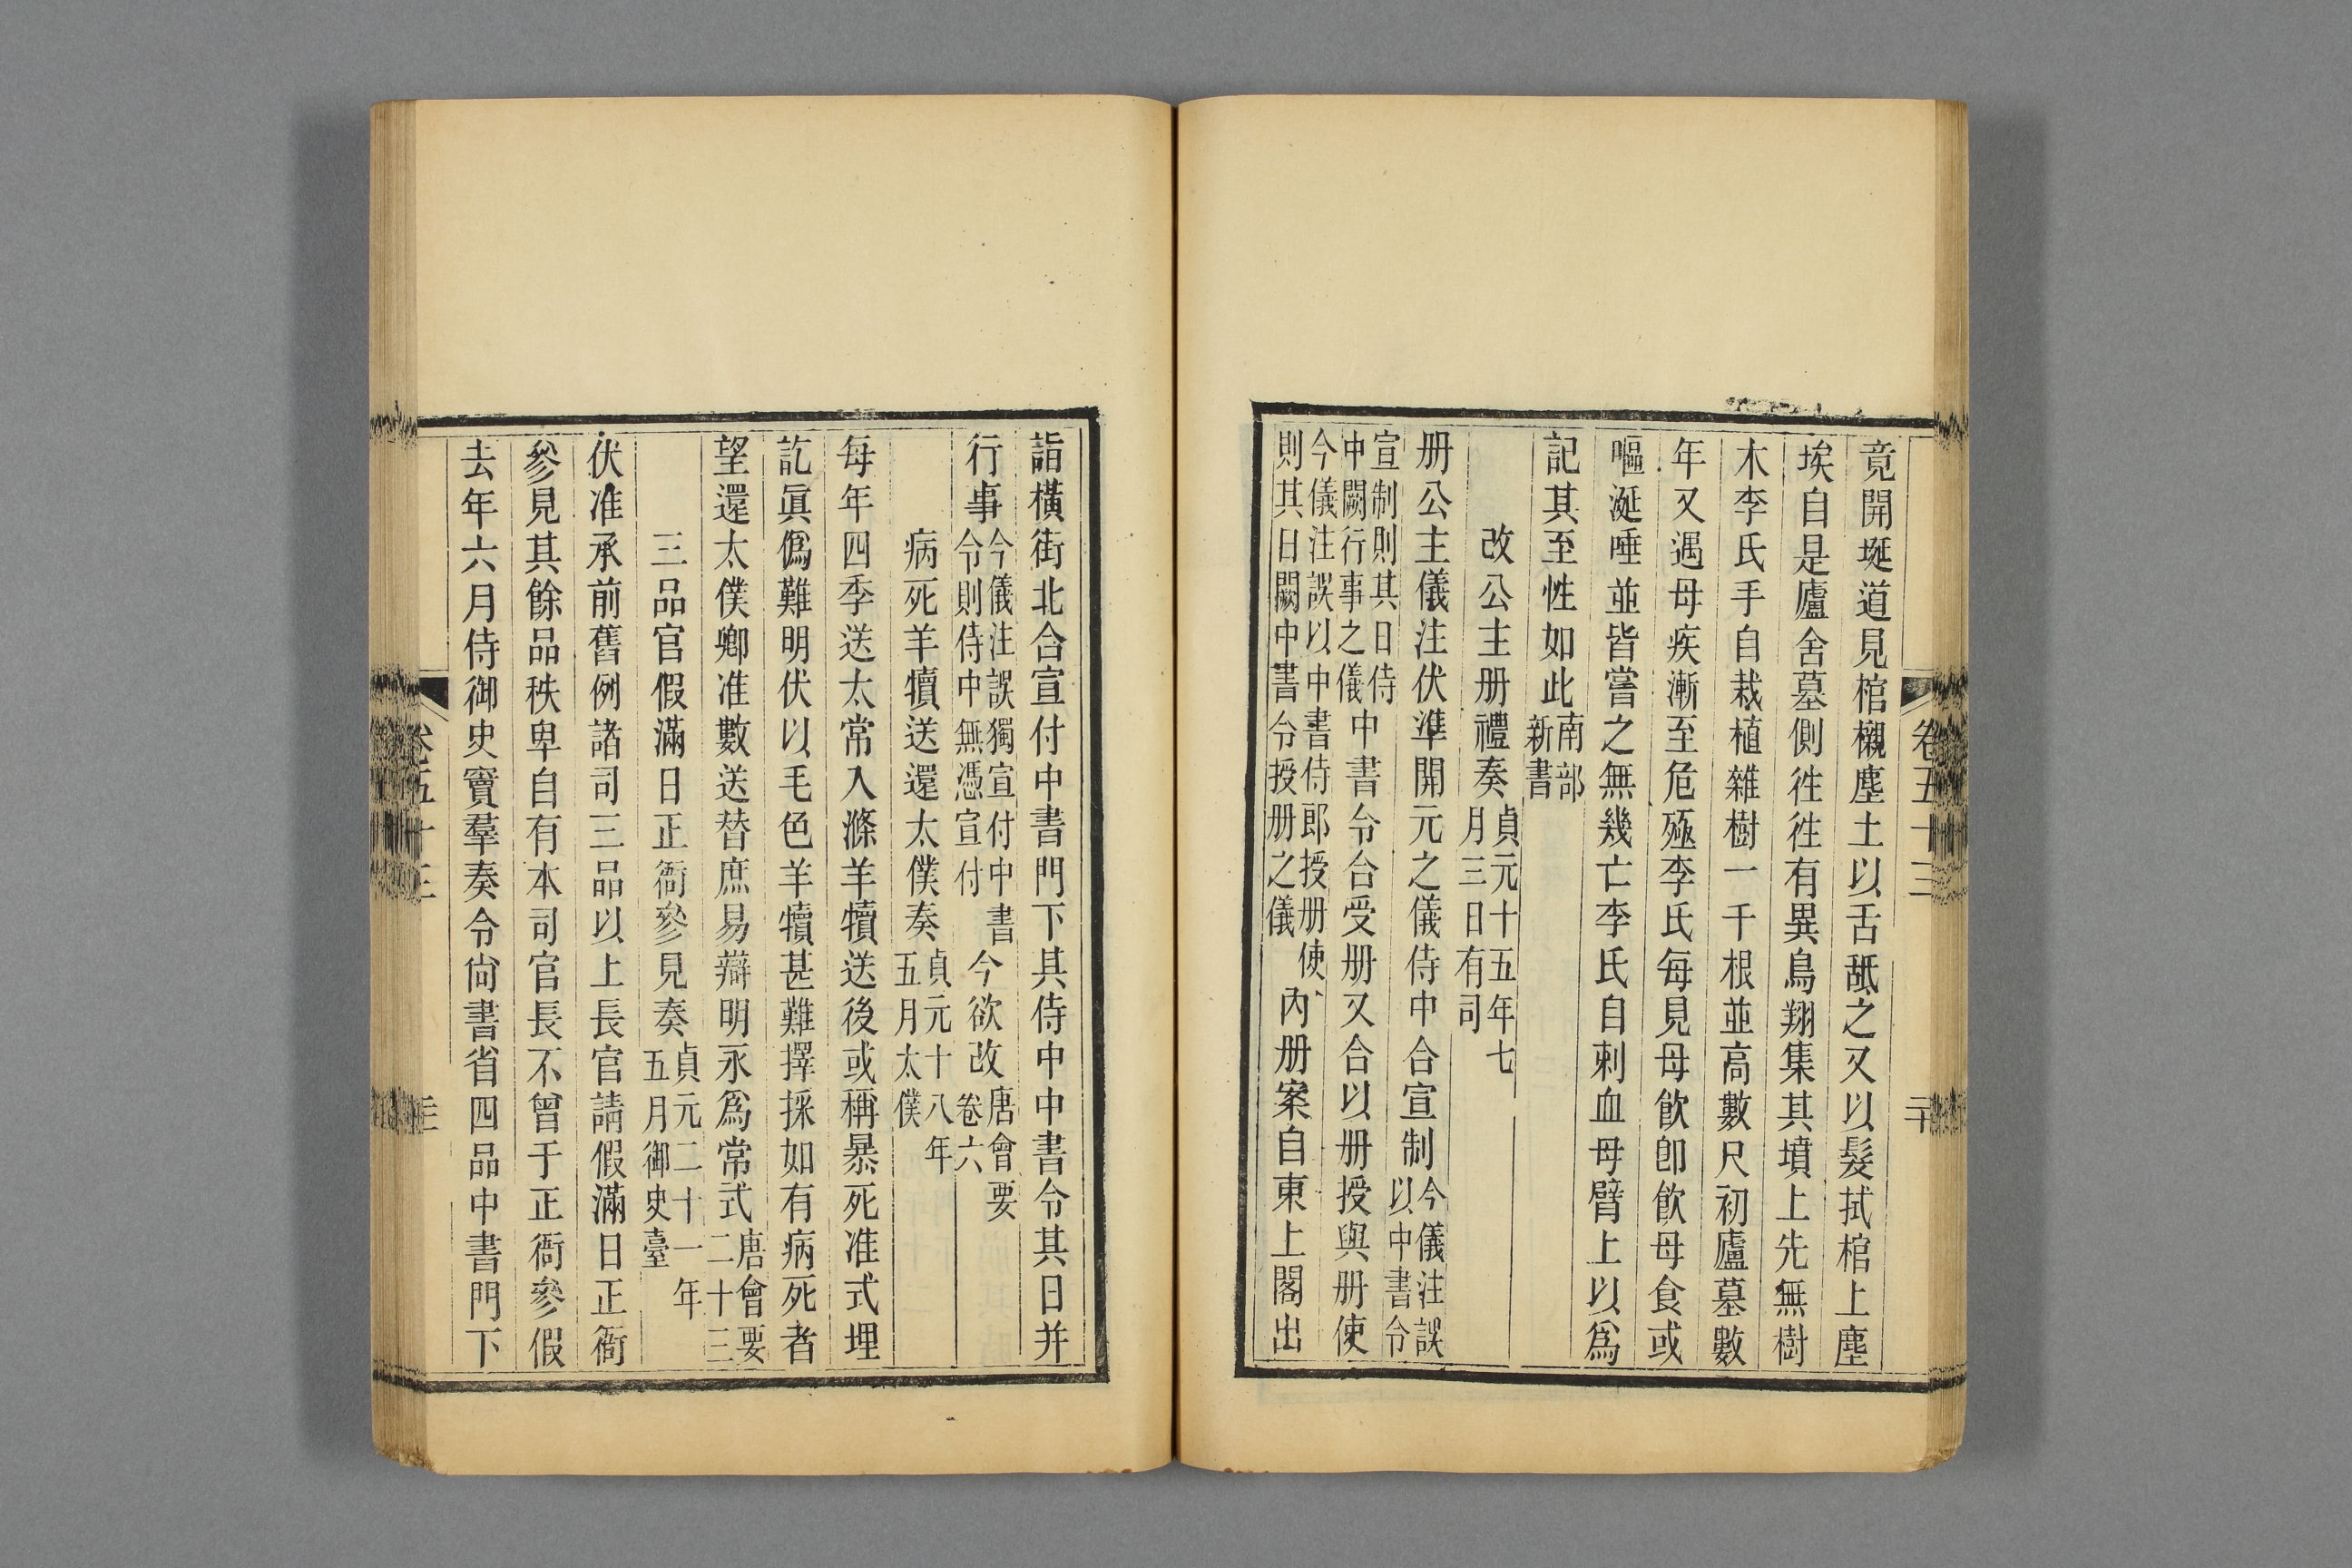 竟開埏道見棺櫬塵土以舌舐之又以髮拭棺上塵
埃自是廬舍墓側徃徃有異鳥翔集其墳上先無樹
木李氏手自栽植雜樹一千根並高數尺初廬墓數
年又遇母疾漸至危殛李氏每見母飮卽飮母食或
嘔涎唾並皆嘗之無幾亡李氏自刺血母臂上以爲
記其至性如此南部新書
改公主册禮奏貞元十五年七月三日有司
册公主儀注伏準開元之儀侍中合宣制今儀注誤以中書令
宣制則其日侍中闕行事之儀中書令合受册又合以册授與册使
今儀注誤以中書侍郎授册使則其日闕中書令授册之儀內册案自東上閤出
卷五十三
詣橫街北合宣付中書門下其侍中中書令其日并
行事今儀注誤獨宣付中書令則侍中無憑宣付今欲改唐會要卷六
病死羊犢送還太僕奏貞元十八年五月太僕
每年四季送太常入滌羊犢送後或稱暴死准式埋
訖眞僞難明伏以毛色羊犢甚難擇採如有病死者
望還太僕卿准數送替庶易辯明永爲常式唐會要二十三
三品官假滿日正衙參見奏貞元二十一年五月御史臺
伏准承前舊例諸司三品以上長官請假滿日正衙
參見其餘品秩卑自有本司官長不曾于正衙參假
去年六月侍御史竇羣奏令尙書省四品中書門下